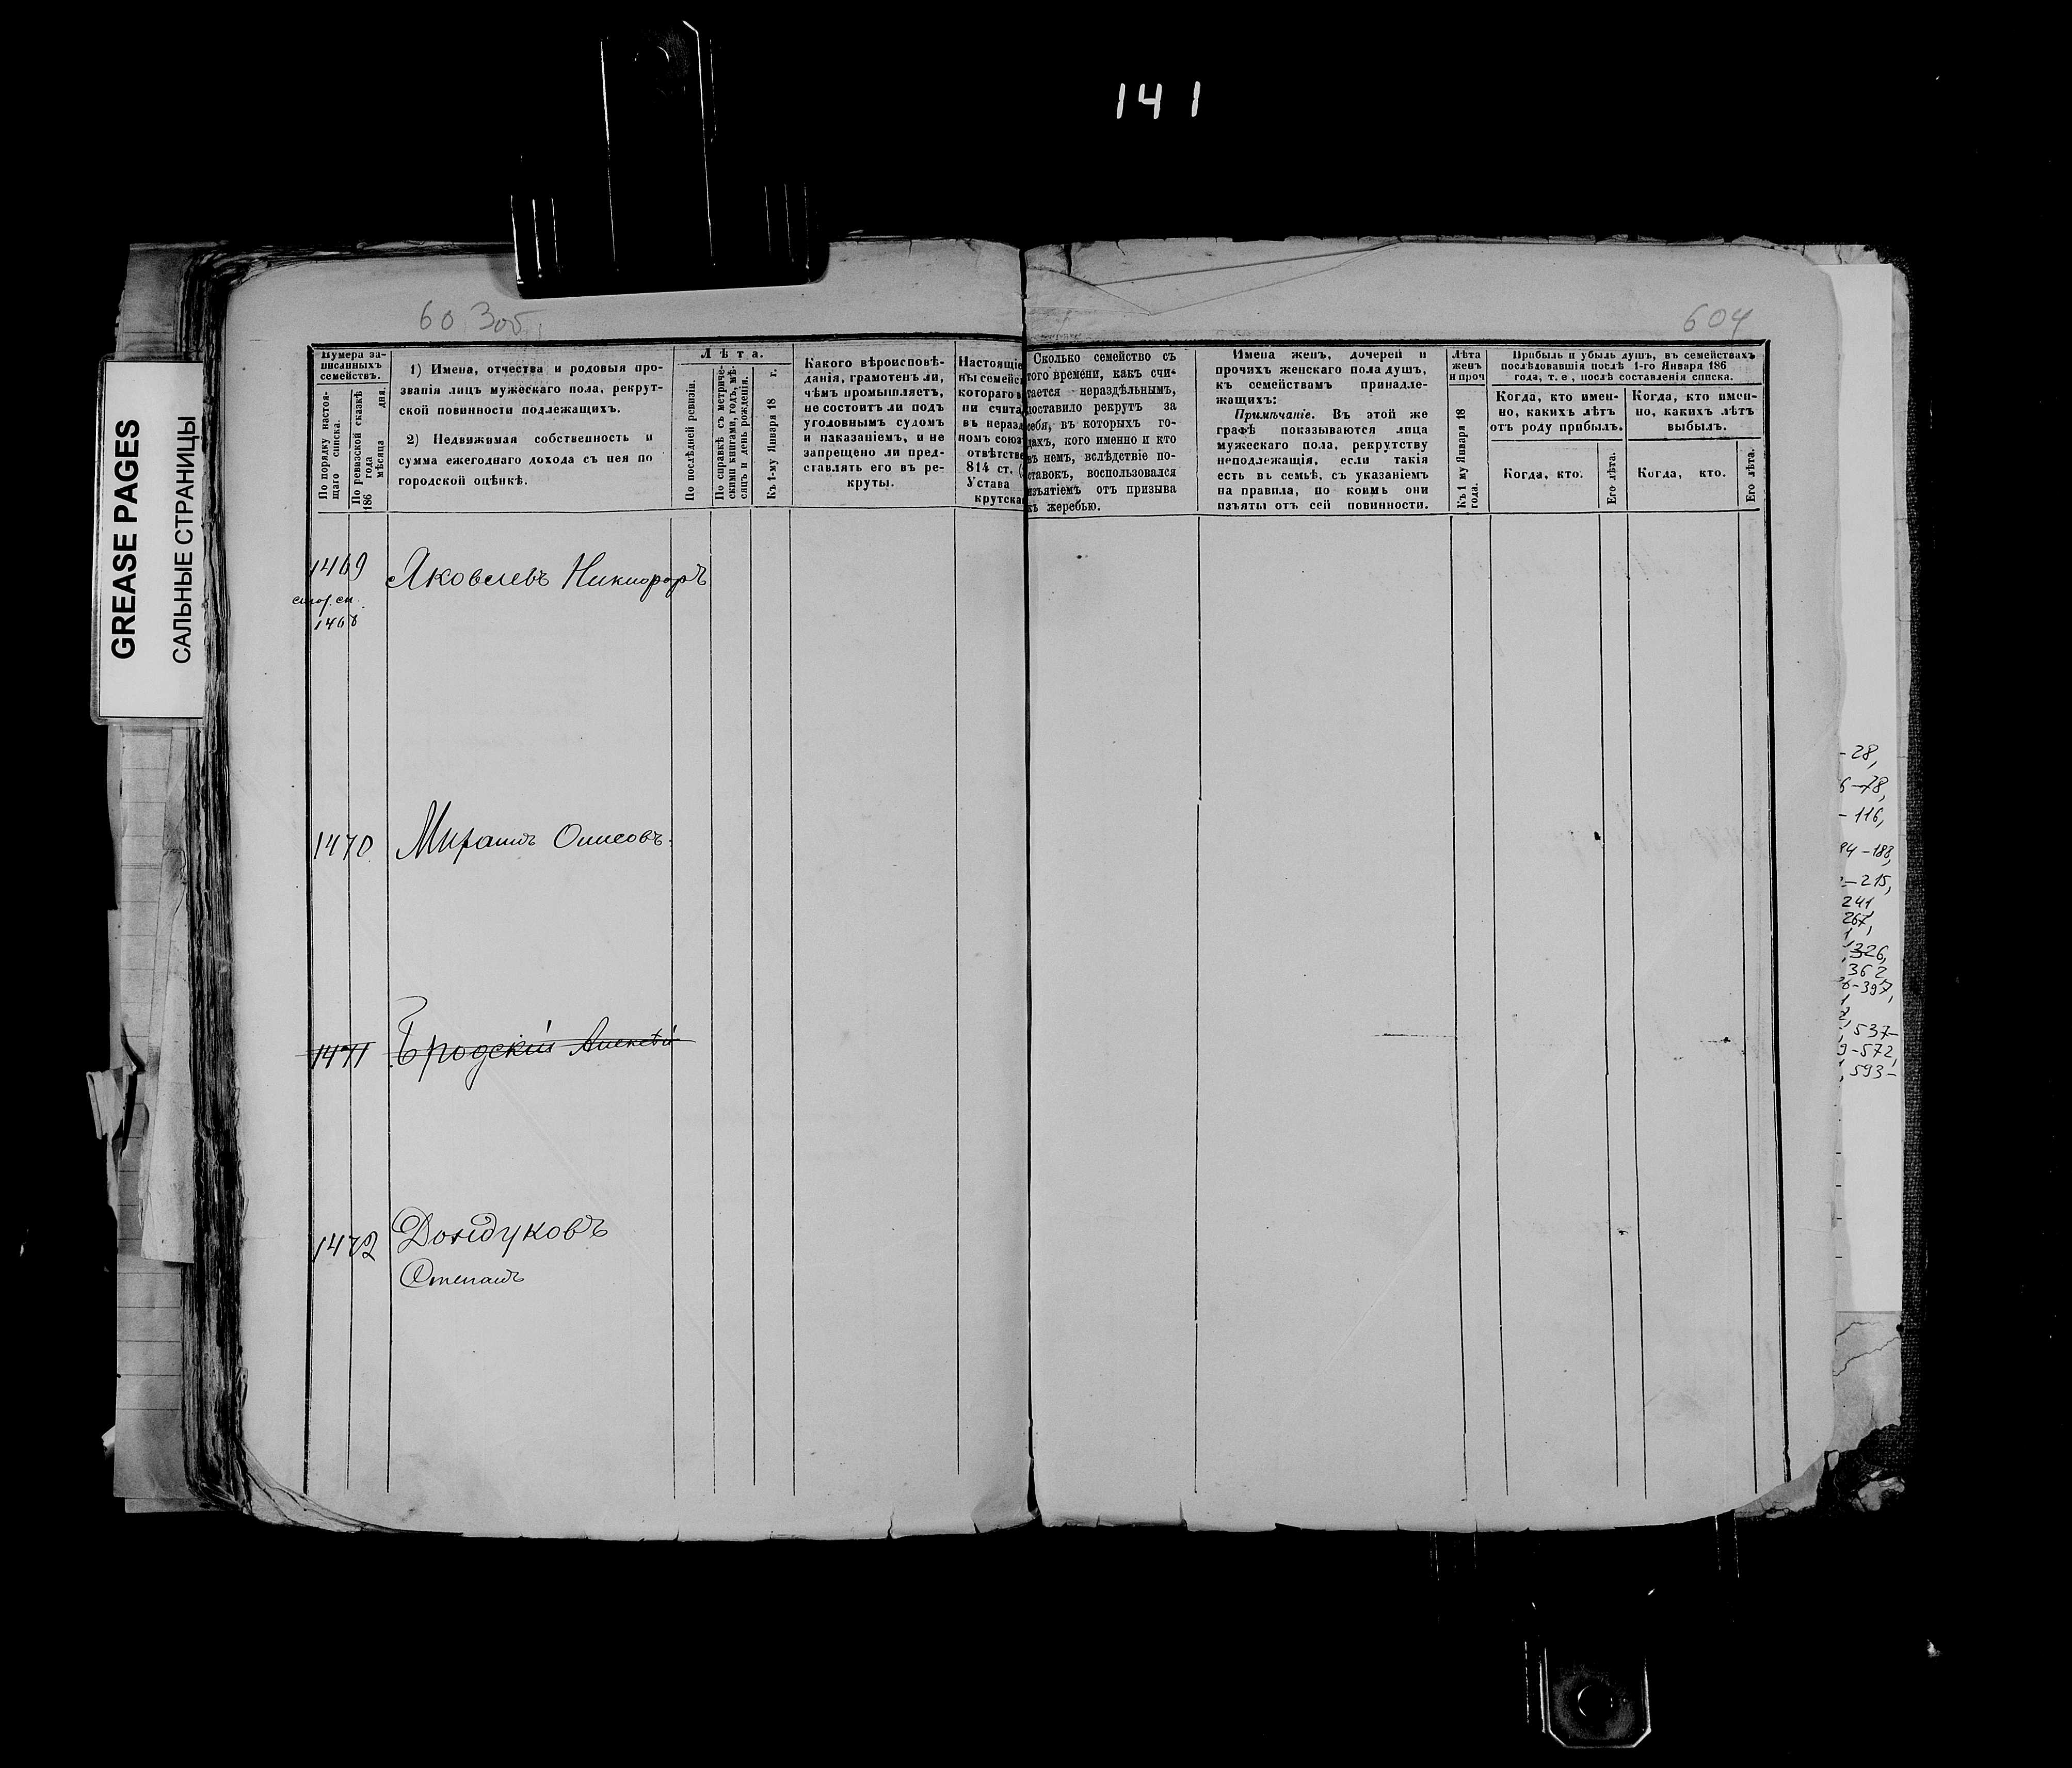 141
GREASE PAGES
САЛЬНЫЕ СТРАНИЦЫ
603об
604
Нумера за-
писанныхъ
семействъ.
По порядку настоя-
щаго списка.
По ревизской сказкѣ
186 года
мѣсяца дня.
1) Имена, отчества и родовыя про-
званія лицъ мужескаго пола, рекрут-
ской повинности подлежащихъ.
2) Недвижимая собственность и
сумма ежегоднаго дохода съ нея по
городской оцѣнкѣ.
Лѣта.
По послѣдней ревизіи.
По справкѣ съ метриче-
скими книгами, годъ, мѣ-
сяцъ и день рожденія.
Къ 1-му Января 18 г.
Какого вѣроисповѣ-
данія, грамотенъ ли,
чѣмъ промышляетъ,
не состоитъ ли подъ
уголовнымъ судомъ
и наказаніемъ, и не
запрещено ли пред-
ставлять его въ ре-
круты.
Настоящіе
ны семейс
котораго в
ни счита
въ нераз
номъ союз
отвѣтстве
814 ст. (
Устава
крутска
Сколько семейство съ
того времени, какъ счи-
тается нераздѣльнымъ,
поставило рекрутъ за
себя, въ которыхъ го-
дахъ, кого именно и кто
въ немъ, вслѣдствіе по-
ставокъ, воспользовался
изъятіемъ отъ призыва
къ жеребью.
Имена женъ, дочерей и
прочихъ женскаго пола душъ,
къ семействамъ принадле-
жащихъ:
Примѣчаніе. Въ этой же
графѣ показываются лица
мужескаго пола, рекрутству
неподлежащія, если такія
есть въ семьѣ, съ указаніемъ
на правила, по коимъ они
изъяты отъ сей повинности.
Лѣта
женъ
и проч
Къ 1 му Января 18
года.
Прибыль и убыль душъ, въ семействахъ
послѣдовавшія послѣ 1-го Января 186
года, т. е, послѣ составленія списка.
Когда, кто имен-
но, какихъ лѣтъ
отъ роду прибылъ.
Когда, кто имен-
но, какихъ лѣтъ
выбылъ.
Когда, кто.
Его лѣта.
Когда, кто.
Его лѣта.
1469 Яковлевъ Никифоръ
1468
1470
1471 Бродскій Алексѣй
1472 Дондуковъ
Степанъ
-28,
6-78,
-116,
84-188,
-215,
241
267,
326,
362
-397,
537-
9-572,
593-